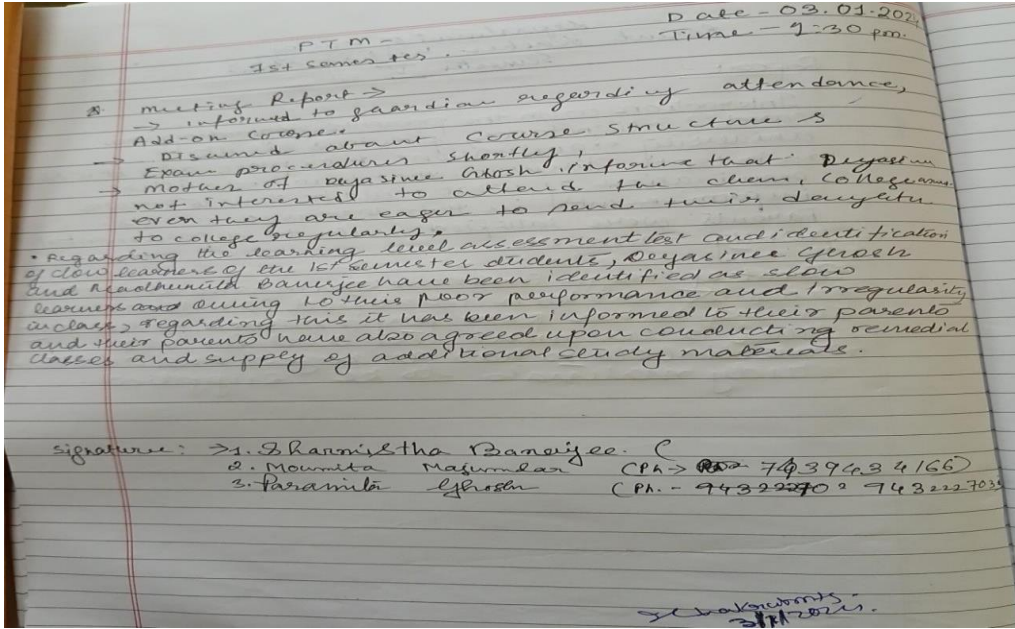 Date - 03.01.2024
PTM -
Time - 1:30 pm.
1st Semester.
Meeting Report →
→ informed to guardian regarding attendance,
Add-on Course.
→ Discussed about Course Structure &
Exam procedures shortly,
→ Mother of Deyasinee Ghosh informe that Deyasinee
not interested to attend the class, College
even they are eager to send their daughter
to college regularly.
• Regarding the learning level assessment test and identification
of slow learners of the 1st semester students, Deyasinee Ghosh
and Madhumita Banerjee have been identified as slow
learners owing to their poor performance and irregularity
in class, regarding this it has been informed to their parents
and their parents have also agreed upon conducting remedial
classes and supply of additional study materials.
Signature: → 1. Sharmistha Banerjee. (
2. Moumita Majumdar (Ph → 7439434166)
3. Paramita Ghosh (Ph. - 9432227035